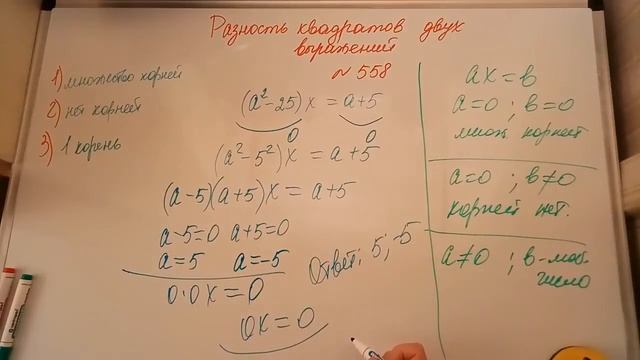 Разность квадратов двух
выражений
№ 558
1) множество корней
2) нет корней
3) 1 корень
(a²-25)x = a+5
0 0
(a²-5²)x = a+5
(a-5)(a+5)x = a+5
a-5=0 a+5=0
a=5 a=-5
Ответ: 5; -5
0·0x=0
0x=0
ax=b
a=0 ; b=0
множ корней
a=0 ; b≠0
корней нет.
a≠0 ; b-люб.
число